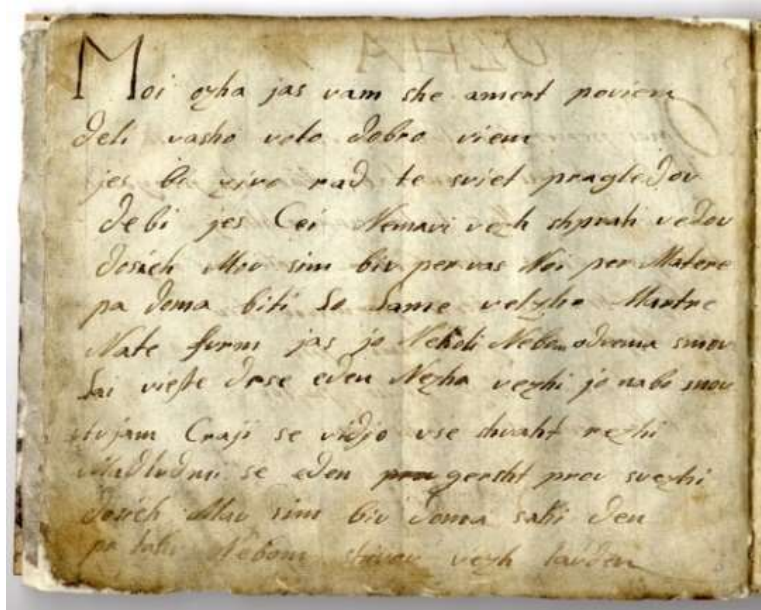 Moi ozha jas vam she ament poviem
deli vasho volo dobro viem
jes bi zivo rad te sviet pragledov
debi jes Cei Nemavi vezh shprati vedov
dosich Mov sim biv per vas Noi per Matere
pa doma biti so same velzho Martre
Nate furm jas jo Nekoli Nebom odvema smov
sai vieste dese eden Nezha vezhi jo nabo snov
Craji se vidjo vse shvaht rezhi
se eden gersht prov svezhi
dosich Mav sim biv doma saki den
pa Nebom vezh